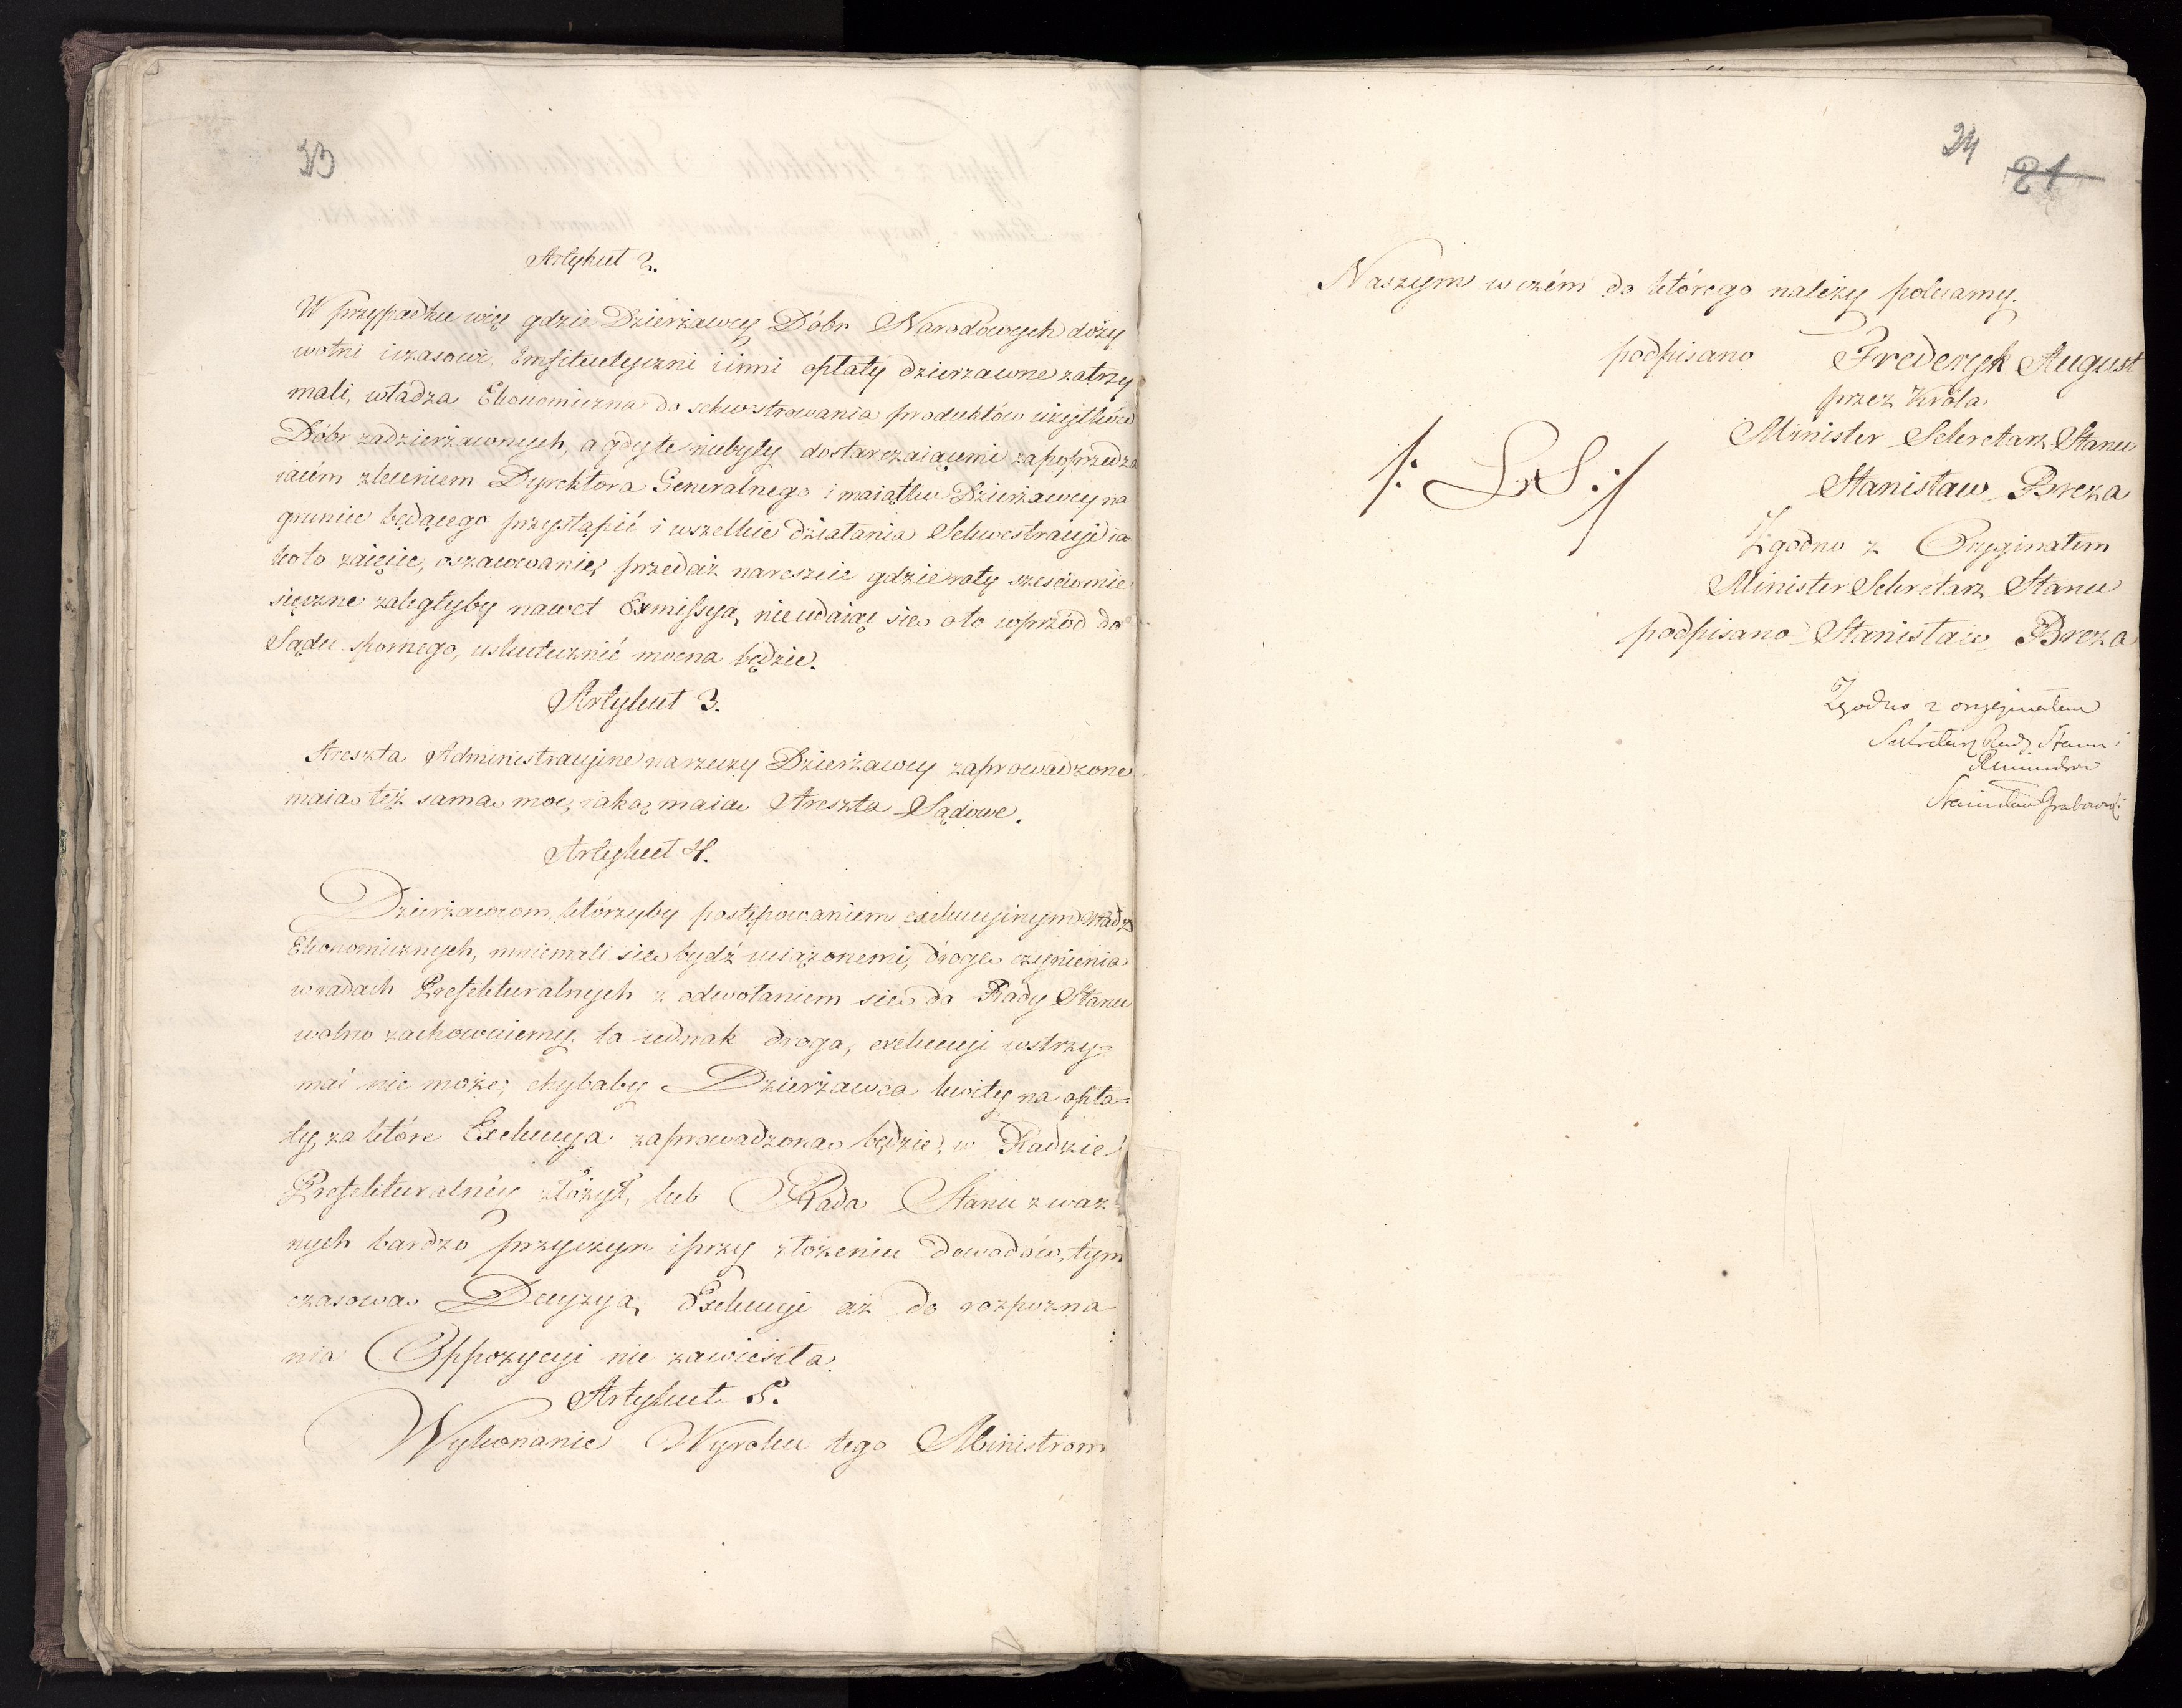 23
Artykuł 2.
W przypadku więc gdzie Dzierżawcy Dóbr Narodowych doży
wotni i czasowi, Emfiteutyczni i inni opłaty dzierżawne zatrzy
mali, władza Ekonomiczna do sekwestrowania produktów użytków
Dóbr zadzierżawnych, a gdy te niebyły dostarczaiącemi za poprzedza
iącém zleceniem Dyrektora Generalnego i maiątku Dzierżawcy na
gruncie będącego przystąpić i wszelkie działania Sekwestracyi ia
koto zaięcie, oszacowanie, przedaż nareszcie gdzie raty sześciomie
sięczne zaległyby nawet Exmissyą, nie udaiąc się o to wprzód do
Sądu spornego, uskutecznić mocna będzie.
Artykuł 3.
Areszta Administracyine na rzeczy Dzierżawcy zaprowadzone
maią też samą moc, iaką maią Areszta Sądowe.
Artykuł 4.
Dzierżawcom, którzyby postępowaniem exekucyinym władz
Ekonomicznych, mniemali się bydź uciążonemi, drogę czynienia
w radach Prefekturalnych z odwołaniem się do Rady Stanu
wolno zachowuiemy, ta iednak droga, exekucyi wstrzy=
mać nie może, chybaby Dzierżawca kwity na opła=
ty, za które Exekucya zaprowadzona będzie, w Radzie
Prefekturalnéy złożył, lub Rada Stanu z waż=
nych bardzo przyczyn i przy złożeniu dowodów, tym
czasową Decyzyą, Exekucyi aż do rozpozna
nia Oppozycyi nie zawiesiła.
Artykuł 5.
Wykonanie Wyroku tego Ministrom
24 21
Naszym w czém do którego należy polecamy.
podpisano Frederyk August
przez Króla
Minister Sekretarz Stanu
/: L. S. :/
Stanisław Breza
Zgodno z Oryginałem
Minister Sekretarz Stanu
podpisano Stanisław Breza
Zgodno z oryginałem
Sekretarz Rady Stanu i
Stanisław Grabowski